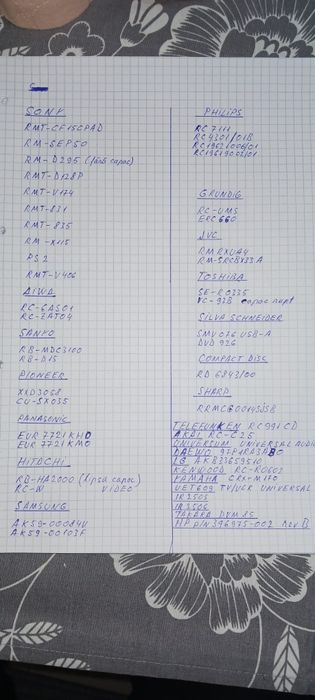 SONY
RMT-CF15CPAD
RM-SEP50
RM-D295 (fara capac)
RMT-D128P
RMT-V174
RMT-831
RMT-835
RM-X115
PS2
RMT-V406
AIWA
RC-6AS01
RC-ZAT04
SANYO
RB-MDC3100
RB-D15
PIONEER
XXD3058
CU-SX035
PANASONIC
EUR 7721KHO
EUR 7721KMO
HITACHI
RB-HA2000 (lipsa capac)
RC-W VIDEO
SAMSUNG
AK59-00084V
AK59-00103F
PHILIPS
RC 7111
RC4301/01B
RC19621006/01
RC19619002/01
GRUNDIG
RC-UMS
ERC660
JVC
RM RXUA4
RM-SRCBX33A
TOSHIBA
SE-R0335
VC-92B capac rupt
SILVA SCHNEIDER
SMU076 USB-A
DVD 926
COMPACT DISC
RD 6843/00
SHARP
RRMCG0014SJSB
TELEFUNKEN RC991CD
AKAI RC-C26
UNIVERSUM UNIVERSAL AUDIO
DAEWO 97P1RA3AB0
LG AKB33659510
KENWOOD RC-R0602
YAMAHA CRX-M170
VET609 TV/VCR UNIVERSAL
IR2505
IR2505
TAKARA DVM85
HP P/N 396975-002 Rev B